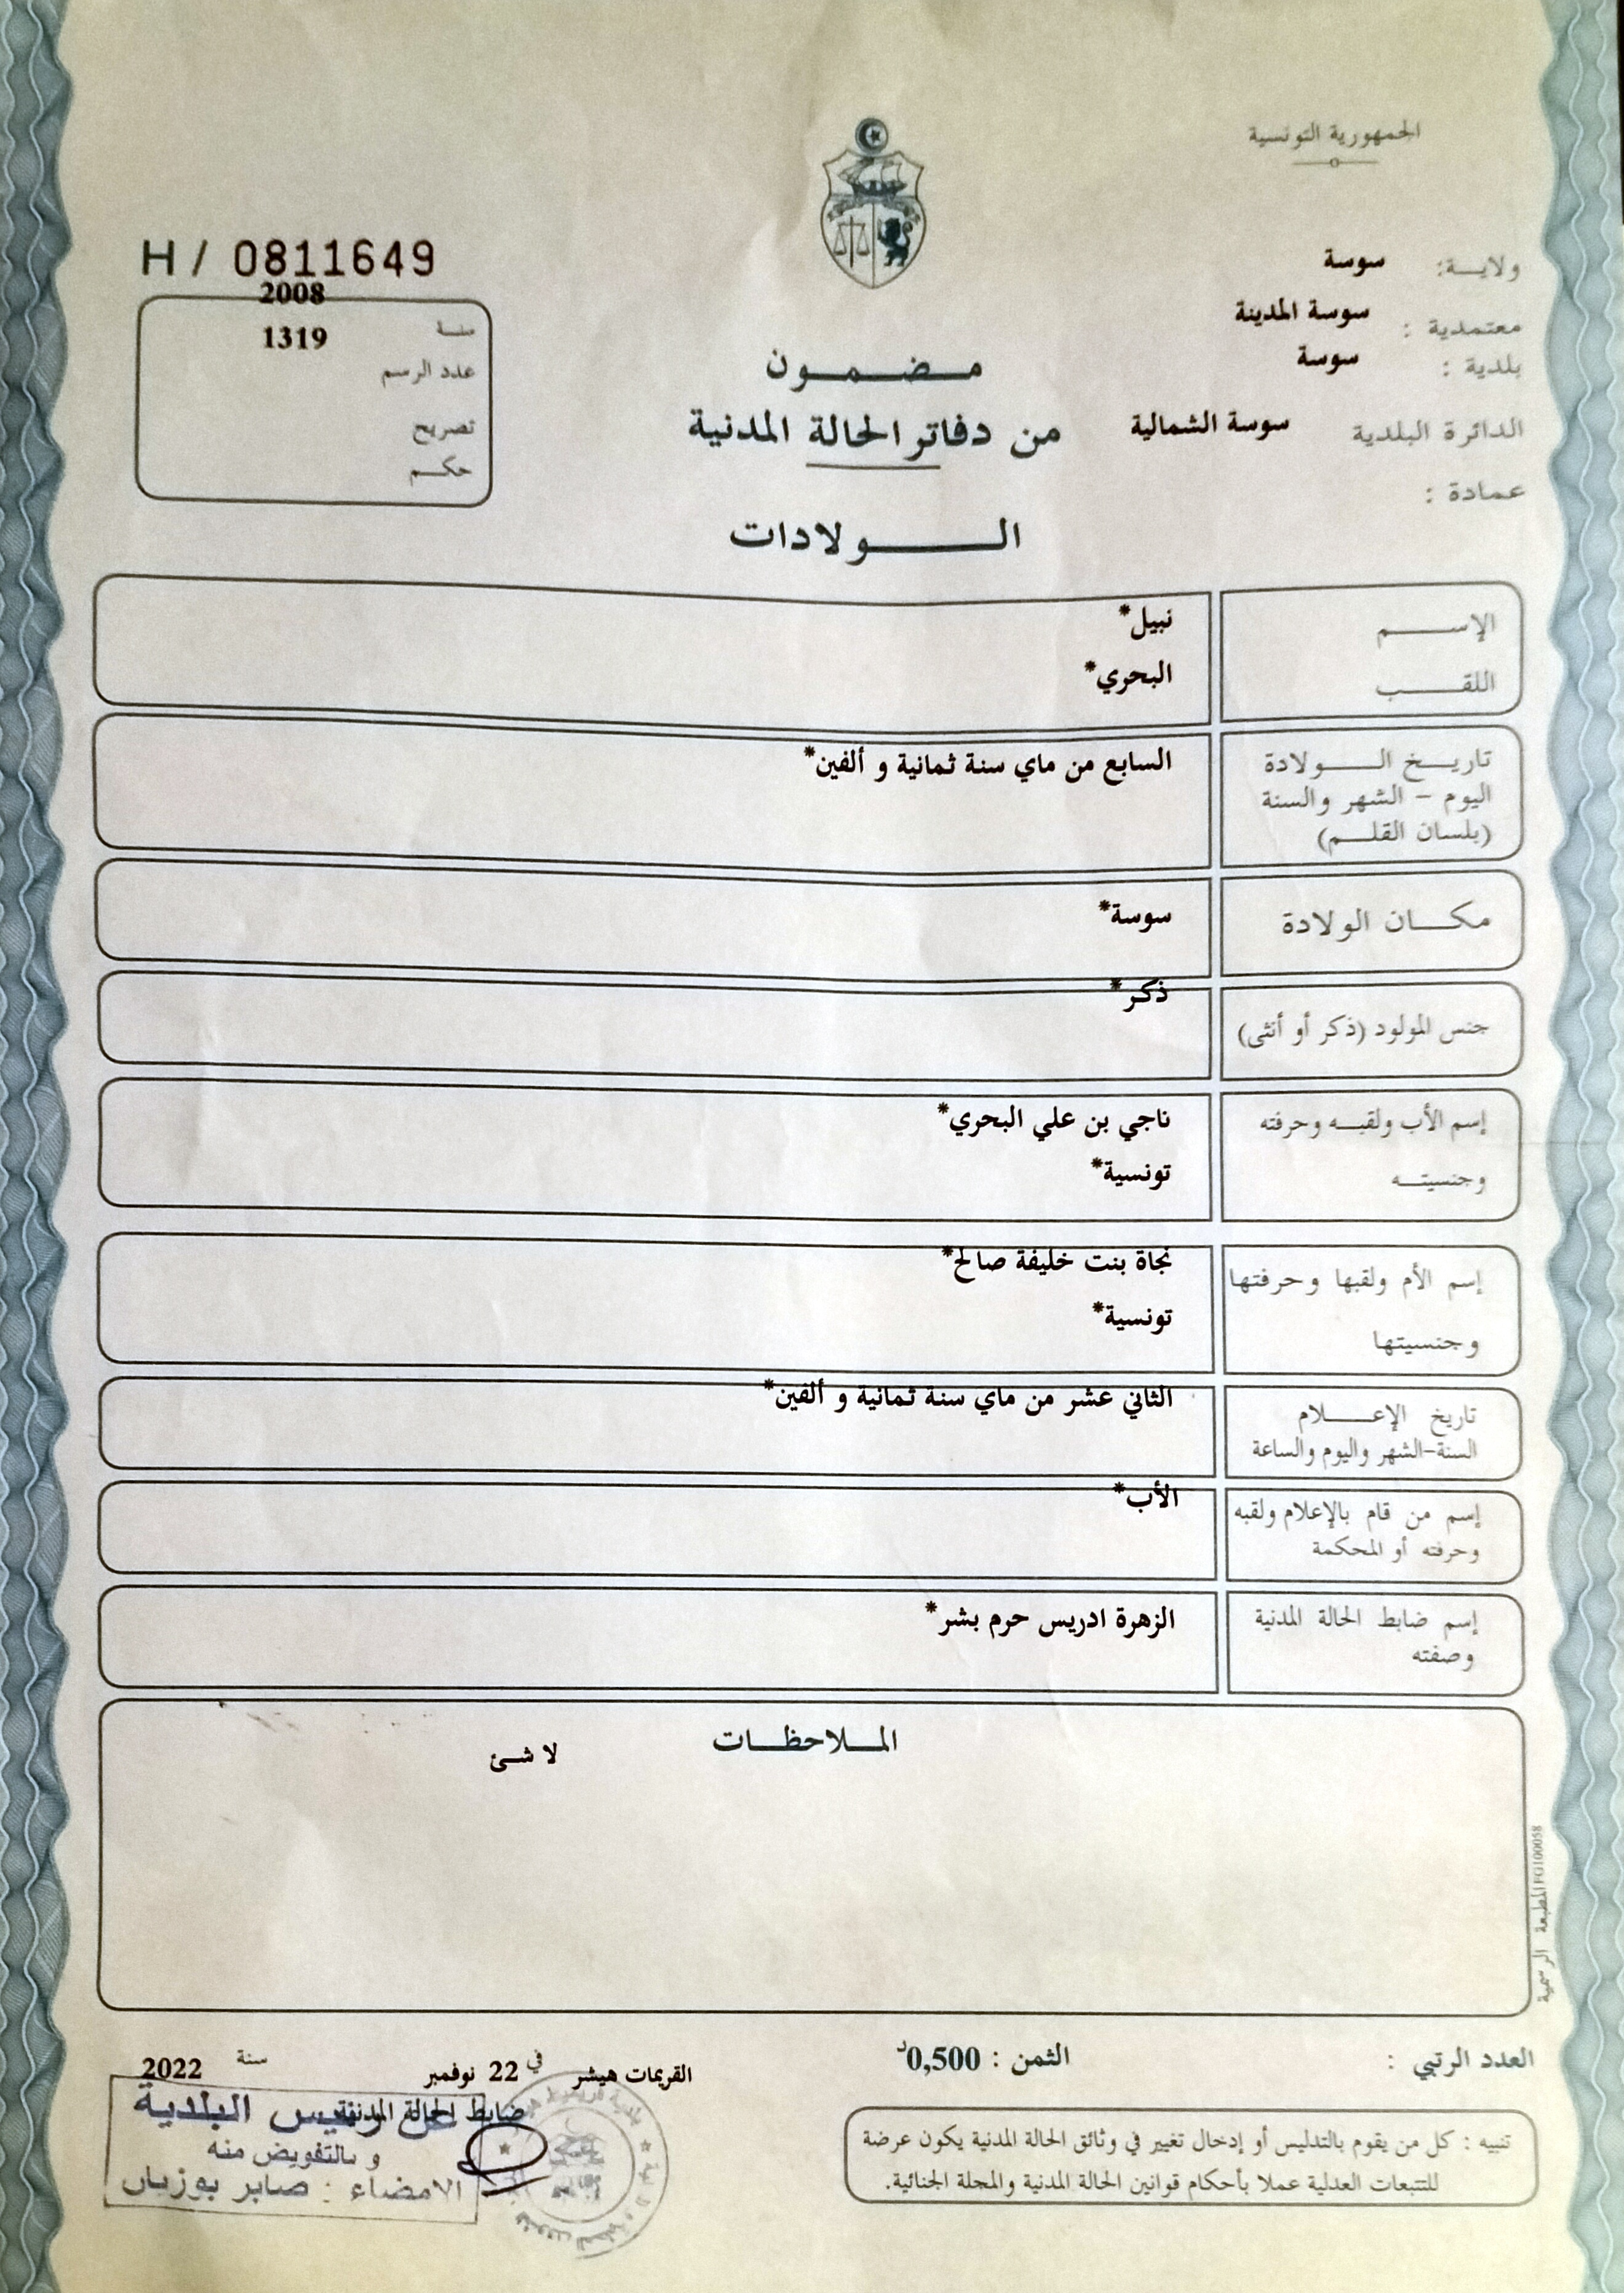 الجمهورية التونسية
H / 0811649
ولاية: سوسة
معتمدية : سوسة المدينة
بلدية : سوسة
الدائرة البلدية سوسة الشمالية
عمادة :
2008
سنة
1319
عدد الرسم
تصريح
حكم
مضمون
من دفاتر الحالة المدنية
الولادات
الإسم نبيل*
اللقب البحري*
تاريخ الولادة السابع من ماي سنة ثمانية و ألفين*
اليوم - الشهر والسنة
(بلسان القلم)
مكان الولادة سوسة*
جنس المولود (ذكر أو أنثى) ذكر*
إسم الأب ولقبه وحرفته ناجي بن علي البحري*
وجنسيته تونسية*
إسم الأم ولقبها وحرفتها نجاة بنت خليفة صالح*
وجنسيتها تونسية*
تاريخ الإعلام الثاني عشر من ماي سنة ثمانية و ألفين*
السنة-الشهر واليوم والساعة
إسم من قام بالإعلام ولقبه الأب*
وحرفته أو المحكمة
إسم ضابط الحالة المدنية الزهرة ادريس حرم بشر*
وصفته
الملاحظات
لا شئ
المطبعة الرسمية FG100058
العدد الرتبي :
الثمن : 0,500د
القريمات هيشر في 22 نوفمبر سنة 2022
ضابط الحالة المدنية
عن رئيس البلدية
و بالتفويض منه
الامضاء : صابر بوزيان
تنبيه : كل من يقوم بالتدليس أو إدخال تغيير في وثائق الحالة المدنية يكون عرضة
للتتبعات العدلية عملا بأحكام قوانين الحالة المدنية والمجلة الجنائية.